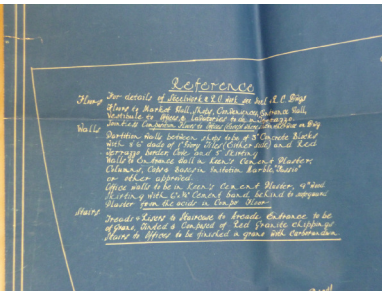 Reference
Floors For details of Steelwork & R.C. work see Str'l & R.C. Dwgs
Floors to Market Hall, Shops, Entrance Hall,
Vestibule to Offices & Lavatories to be in Terrazzo.
Jointless Composition Floors to Offices
Walls
Partition Walls between shops to be of 3" Concrete Blocks
with 6" dado of Tiling Tiles (Either side) and Red
Terrazzo border, Cove, and 3" Skirting
Walls to Entrance Hall in Keen's Cement Plaster,
Columns, Bases in Imitation Marble,
or other approved.
Office Walls to be in Keen's Cement Plaster, 9" Wood
Skirting with Cement band behind to safeguard
Plaster from the acids in Comp'n Floor
Stairs
Treads & Risers to Staircase to Arcade Entrance to be
of Grano, Tinted & Composed of Red Granite chippings
Stairs to Offices to be finished in grano with Carborundum